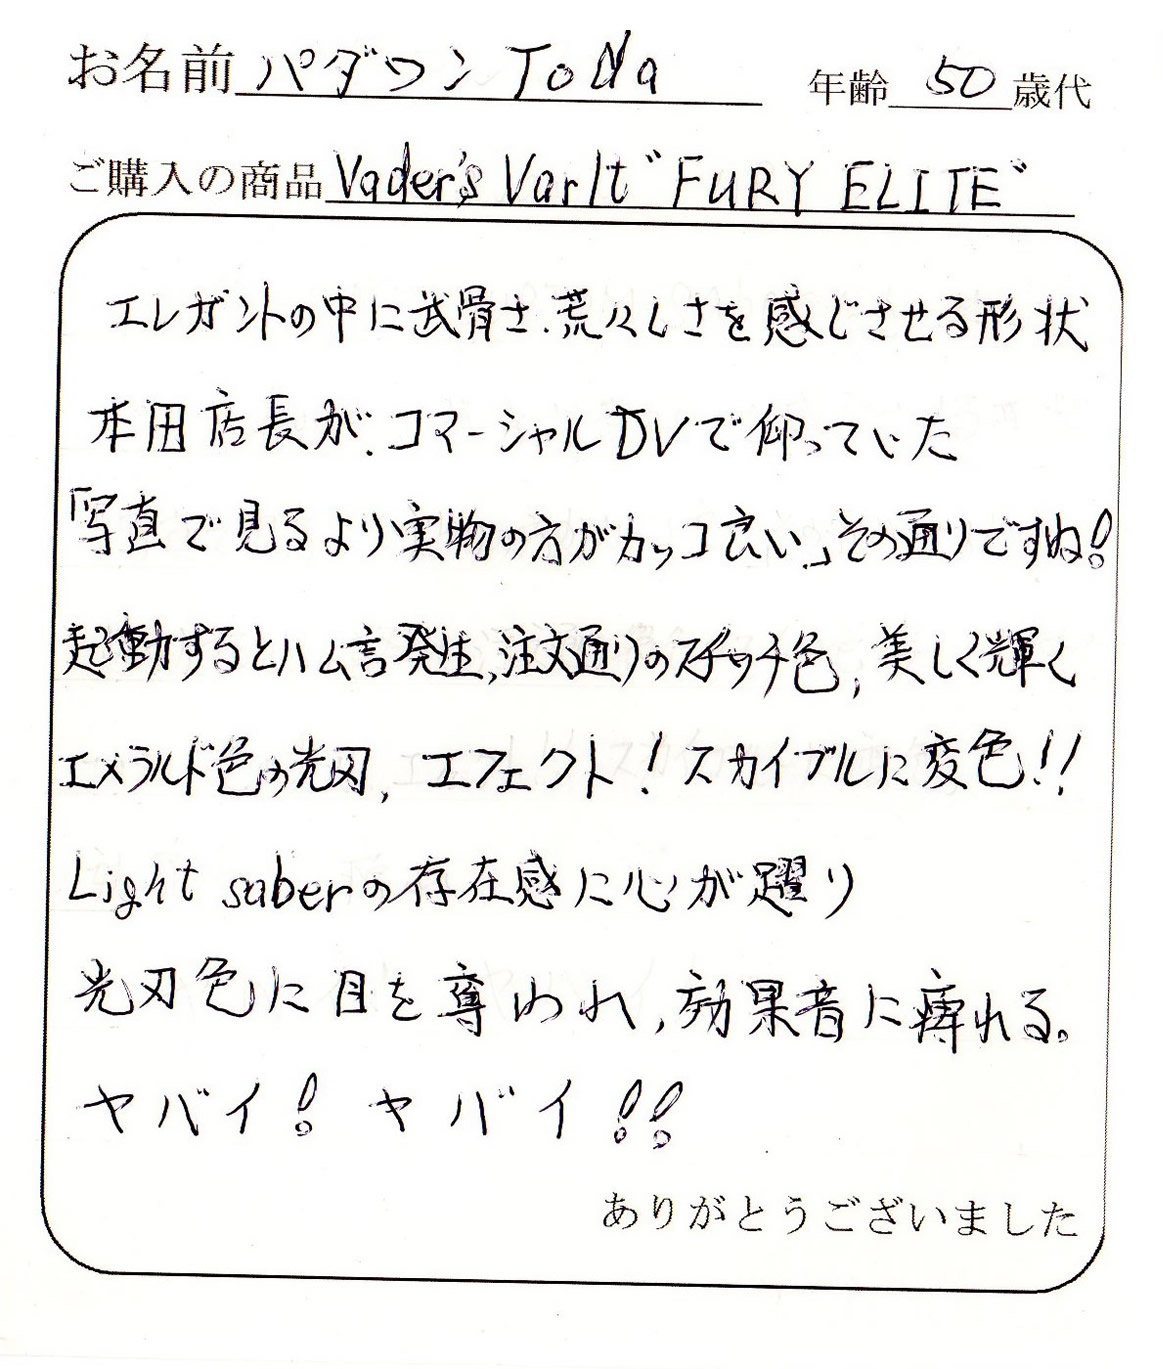 お名前 パダワン Toda 年齢 50 歳代
ご購入の商品 Vader's Varlt "FURY ELITE"
エレガントの中に武骨さ、荒々しさを感じさせる形状
本田店長が、コマーシャルDVで仰っていた
「写真で見るより実物の方がカッコ良い」その通りですね!
起動するとハム音発生、注文通りのスイッチ色、美しく輝く
エメラルド色の光刃、エフェクト!スカイブルに変色!!
Light saberの存在感に心が躍り
光刃色に目を奪われ、効果音に痺れる。
ヤバイ! ヤバイ!!
ありがとうございました